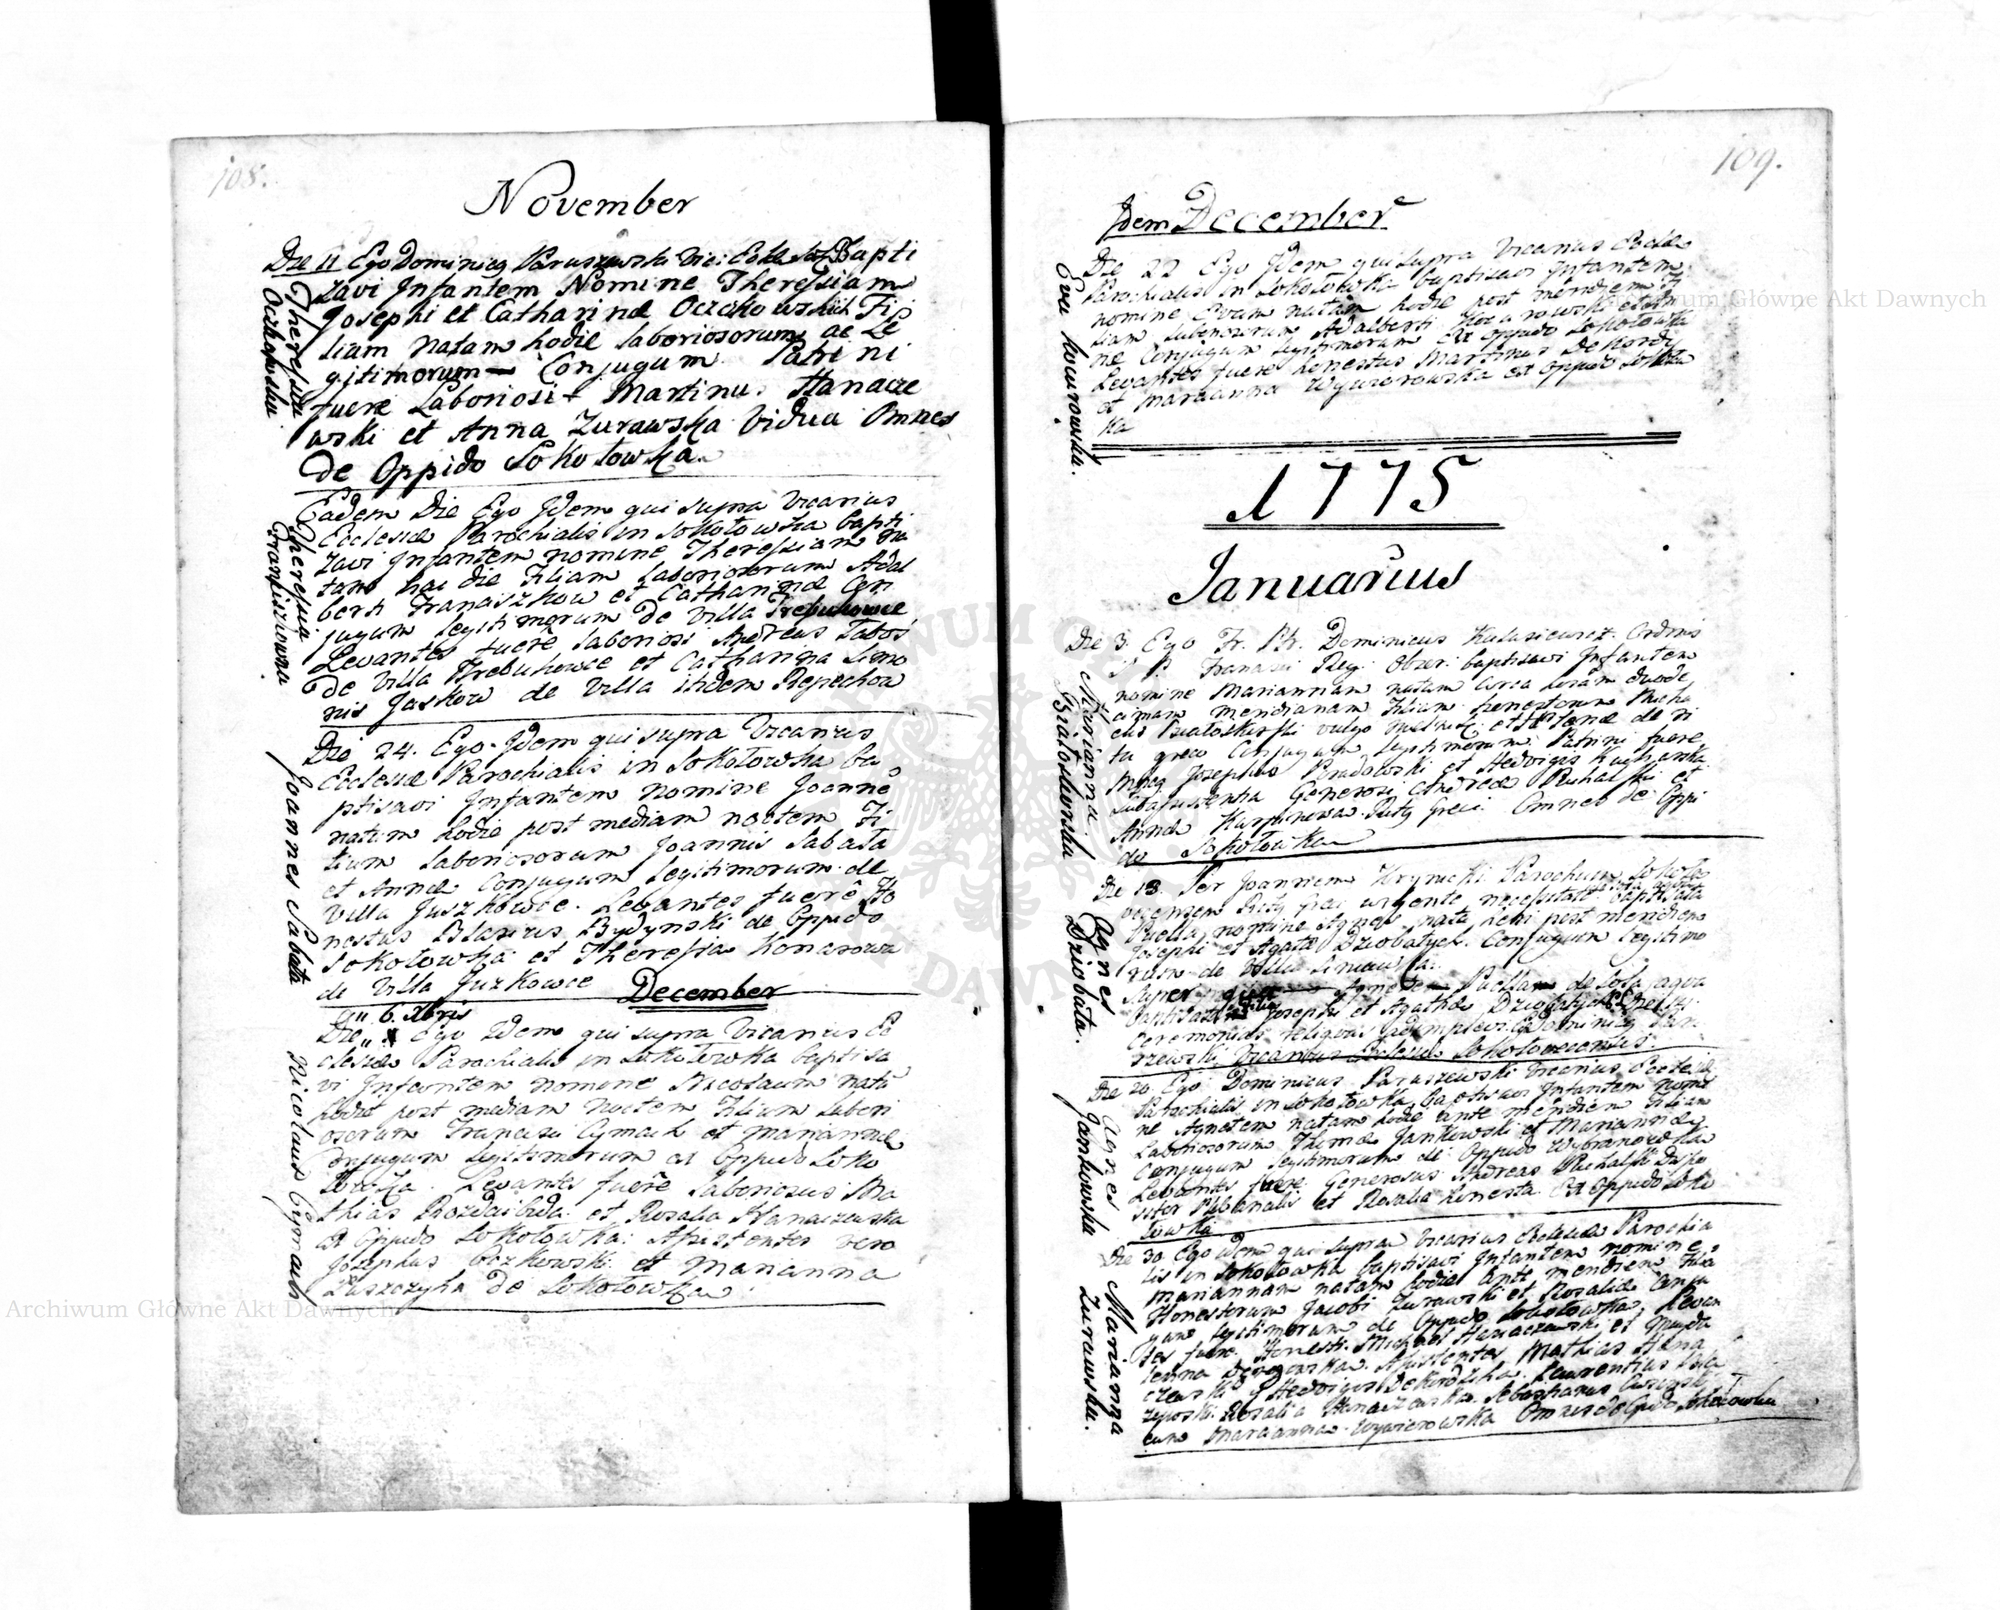 108.
November
Die 11 Ego Dominicus Paruszewski Vic: Eccle Sok Bapti
zavi Infantem Nomine Theressiam
Josephi et Catharinæ Oczkowskich Fi
liam natam hodie laboriosorum de Le
gitimorum Conjugum. Patrini
fuere Laboriosi Martinu. Hanacze
wski et Anna Zurawska Vidua Omnes
de Oppido Sokołowka
Theressia
Oczkowska
Eadem Die Ego Idem qui supra Vicarius
Ecclesiæ Parochialis in Sokołowka bapti
zavi Infantem nomine Theressiam na
tam hac die Filiam Laboriosorum Adal
berti Franciszkow et Catharinæ Con
jugum legitimorum de Villa Trebuhowce
Levantes fuere laboriosi Andreas Łaboś
de Villa Trebuhowce et Catharina Simo
nis Jaskow de Villa itidem Repechow
Theressia
Franciszkowna
Die 24. Ego Idem qui supra Vicarius
Ecclesiæ Parochialis in Sokołowka ba
ptisavi Infantem nomine Joanne
natum hodie post mediam noctem Fi
lium laboriosorum Joannis Sabata
et Annæ Conjugum legitimorum de
Villa Juszkowce. Levantes fuere Ho
nestus Blasius Bydynski de Oppido
Sokołowka et Theressia Konarowa
de Villa Juszkowce
Joannes Sabata
December
6. Xbris
Die Ego Idem qui supra Vicarius Ec
clesiæ Parochialis in Sokołowka baptisa
vi Infantem nomine Nicolaum natu
hodie post mediam noctem Filium labori
osorum Francisci Cymach et Mariannæ
Conjugum legitimorum de Oppido Soko
łowka. Levantes fuere laboriosus Ma
thias Rozdaibida et Rosalia Hanaczewska
de Oppido Sokołowka: Assistentes vero
Josephus Oczkowski et Marianna
Puszczyha de Sokołowka.
Nicolaus Cymach
109.
Idem December
Die 22 Ego Idem qui supra Vicarius Eccle
Parochialis in Sokołowka baptisavi Infantem
nomine Evam natam hodie post meridiem Fi
liam laboriosorum Adalberti Kocurowski et
ne Conjugum legitimorum de Oppido Sokołowka
Levantes fuere honestus Martinus Dekordy
et Marianna Wywiorowska de Oppido Sokołow
ka
Eva Kocurowska.
1775
Januarius
Die 3. Ego Fr. Dominicus Ordinis
S. P. Francisci Reg: Obser: baptisavi Infantem
nomine Mariannam natam circa horam duode
cimam meridianam Filiam honestorum Micha
elis Białoskurski vulgo et de ri
tu græco Conjugum legitimorum. Patrini fuere
Josephus et Hedvigis Kucharska
Generosi Andreæ Puhalski et
Anna Karpinowa Ritus Græci Omnes de Oppi
do Sokołowka
Marianna
Białoskurska
Die 13. Per Joannem Hrynicki Parochum Sokoło
vecensem Ritus Græci urgente necessitate baptisata
Puella nomine Agnes nata heri post meridiem
Josephi et Agatæ Dziobatych Conjugum legitimo
rum de Villa
Super Agnetem Puellam de sola aqua
baptisatam Josephi et Agathæ
Ceremonias religiosas Dominicus Paru
szewski Vicarius Ecclesiæ Sokołowecensis.
Agnes
Dziobata.
Die 20. Ego Dominicus Paruszewski Vicarius Ecclesiæ
Parochialis in Sokołowka baptisavi Infantem nomi
ne Agnetem natam hodie ante meridiem Filiam
Laboriosorum Thomæ Jankowski et Mariannæ
Conjugum legitimorum de Oppido
Levantes fuere Generosus Andreas Puchalski
et Rosalia honesta de Oppido Soko
łowka
Agnes
Jankowska
Die 30. Ego Idem qui supra Vicarius Ecclesiæ Parochia
lis in Sokołowka baptisavi Infantem nomine
Mariannam natam hodie ante meridiem Filia
Honestorum Jacobi Zurawski et Rosaliæ Conju
gum legitimorum de Oppido Sokołowka, Levan
tes fuere Honesti Michael Hanaczewski et Magda
lenna Assistentes Mathias Hana
czewski Hedvigis Laurentius
Rosalia Hanaczewska. Sebastianus
cum Marianna Wywiorowska Omnes de Oppido Sokołowka
Marianna
Zurawska.
Archiwum Główne Akt Dawnych
Archiwum Główne Akt Dawnych